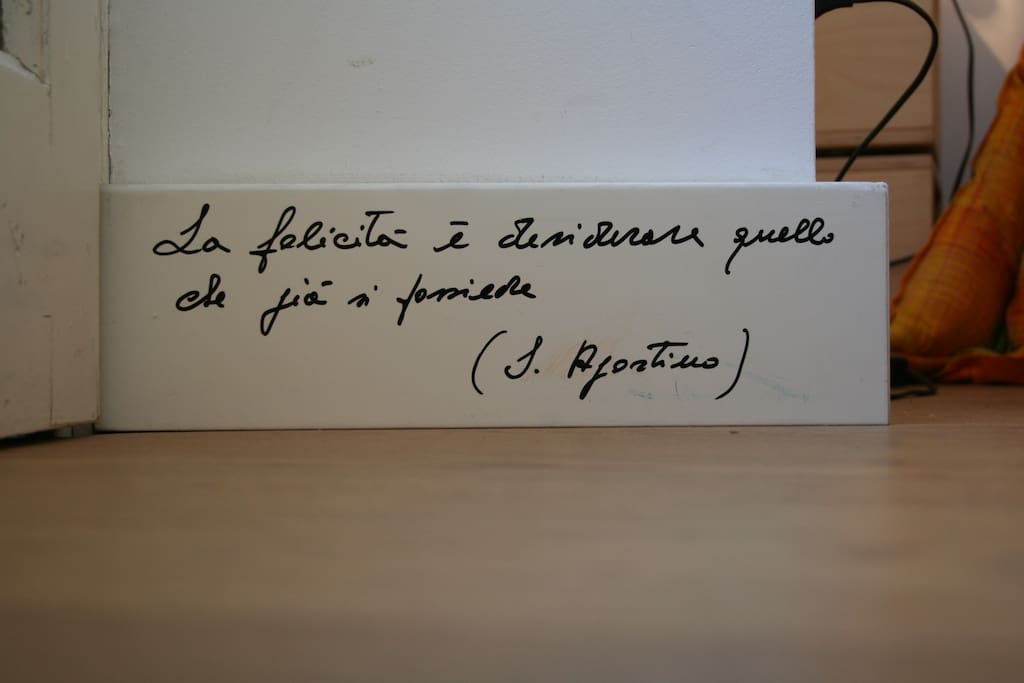 La felicità è desiderare quello
che già si possiede
(S. Agostino)